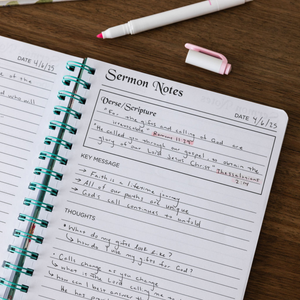 DATE 4/6/25
Sermon Notes
DATE 4/6/25
Verse/Scripture
"For the gifts and calling of God are
irrevocable" Romans 11:29
"He called you through our gospel to obtain the
glory of our Lord Jesus Christ" 2 Thessalonians
2:14
KEY MESSAGE
→ Faith is a lifelong journey
→ All of our paths are unique
→ God's call continues to unfold
THOUGHTS
• What do my gifts look like?
↳ how do I use my gifts for God?
• Calls change as you change
↳ when is the Lord calling me to
how can I hear answer the
He has